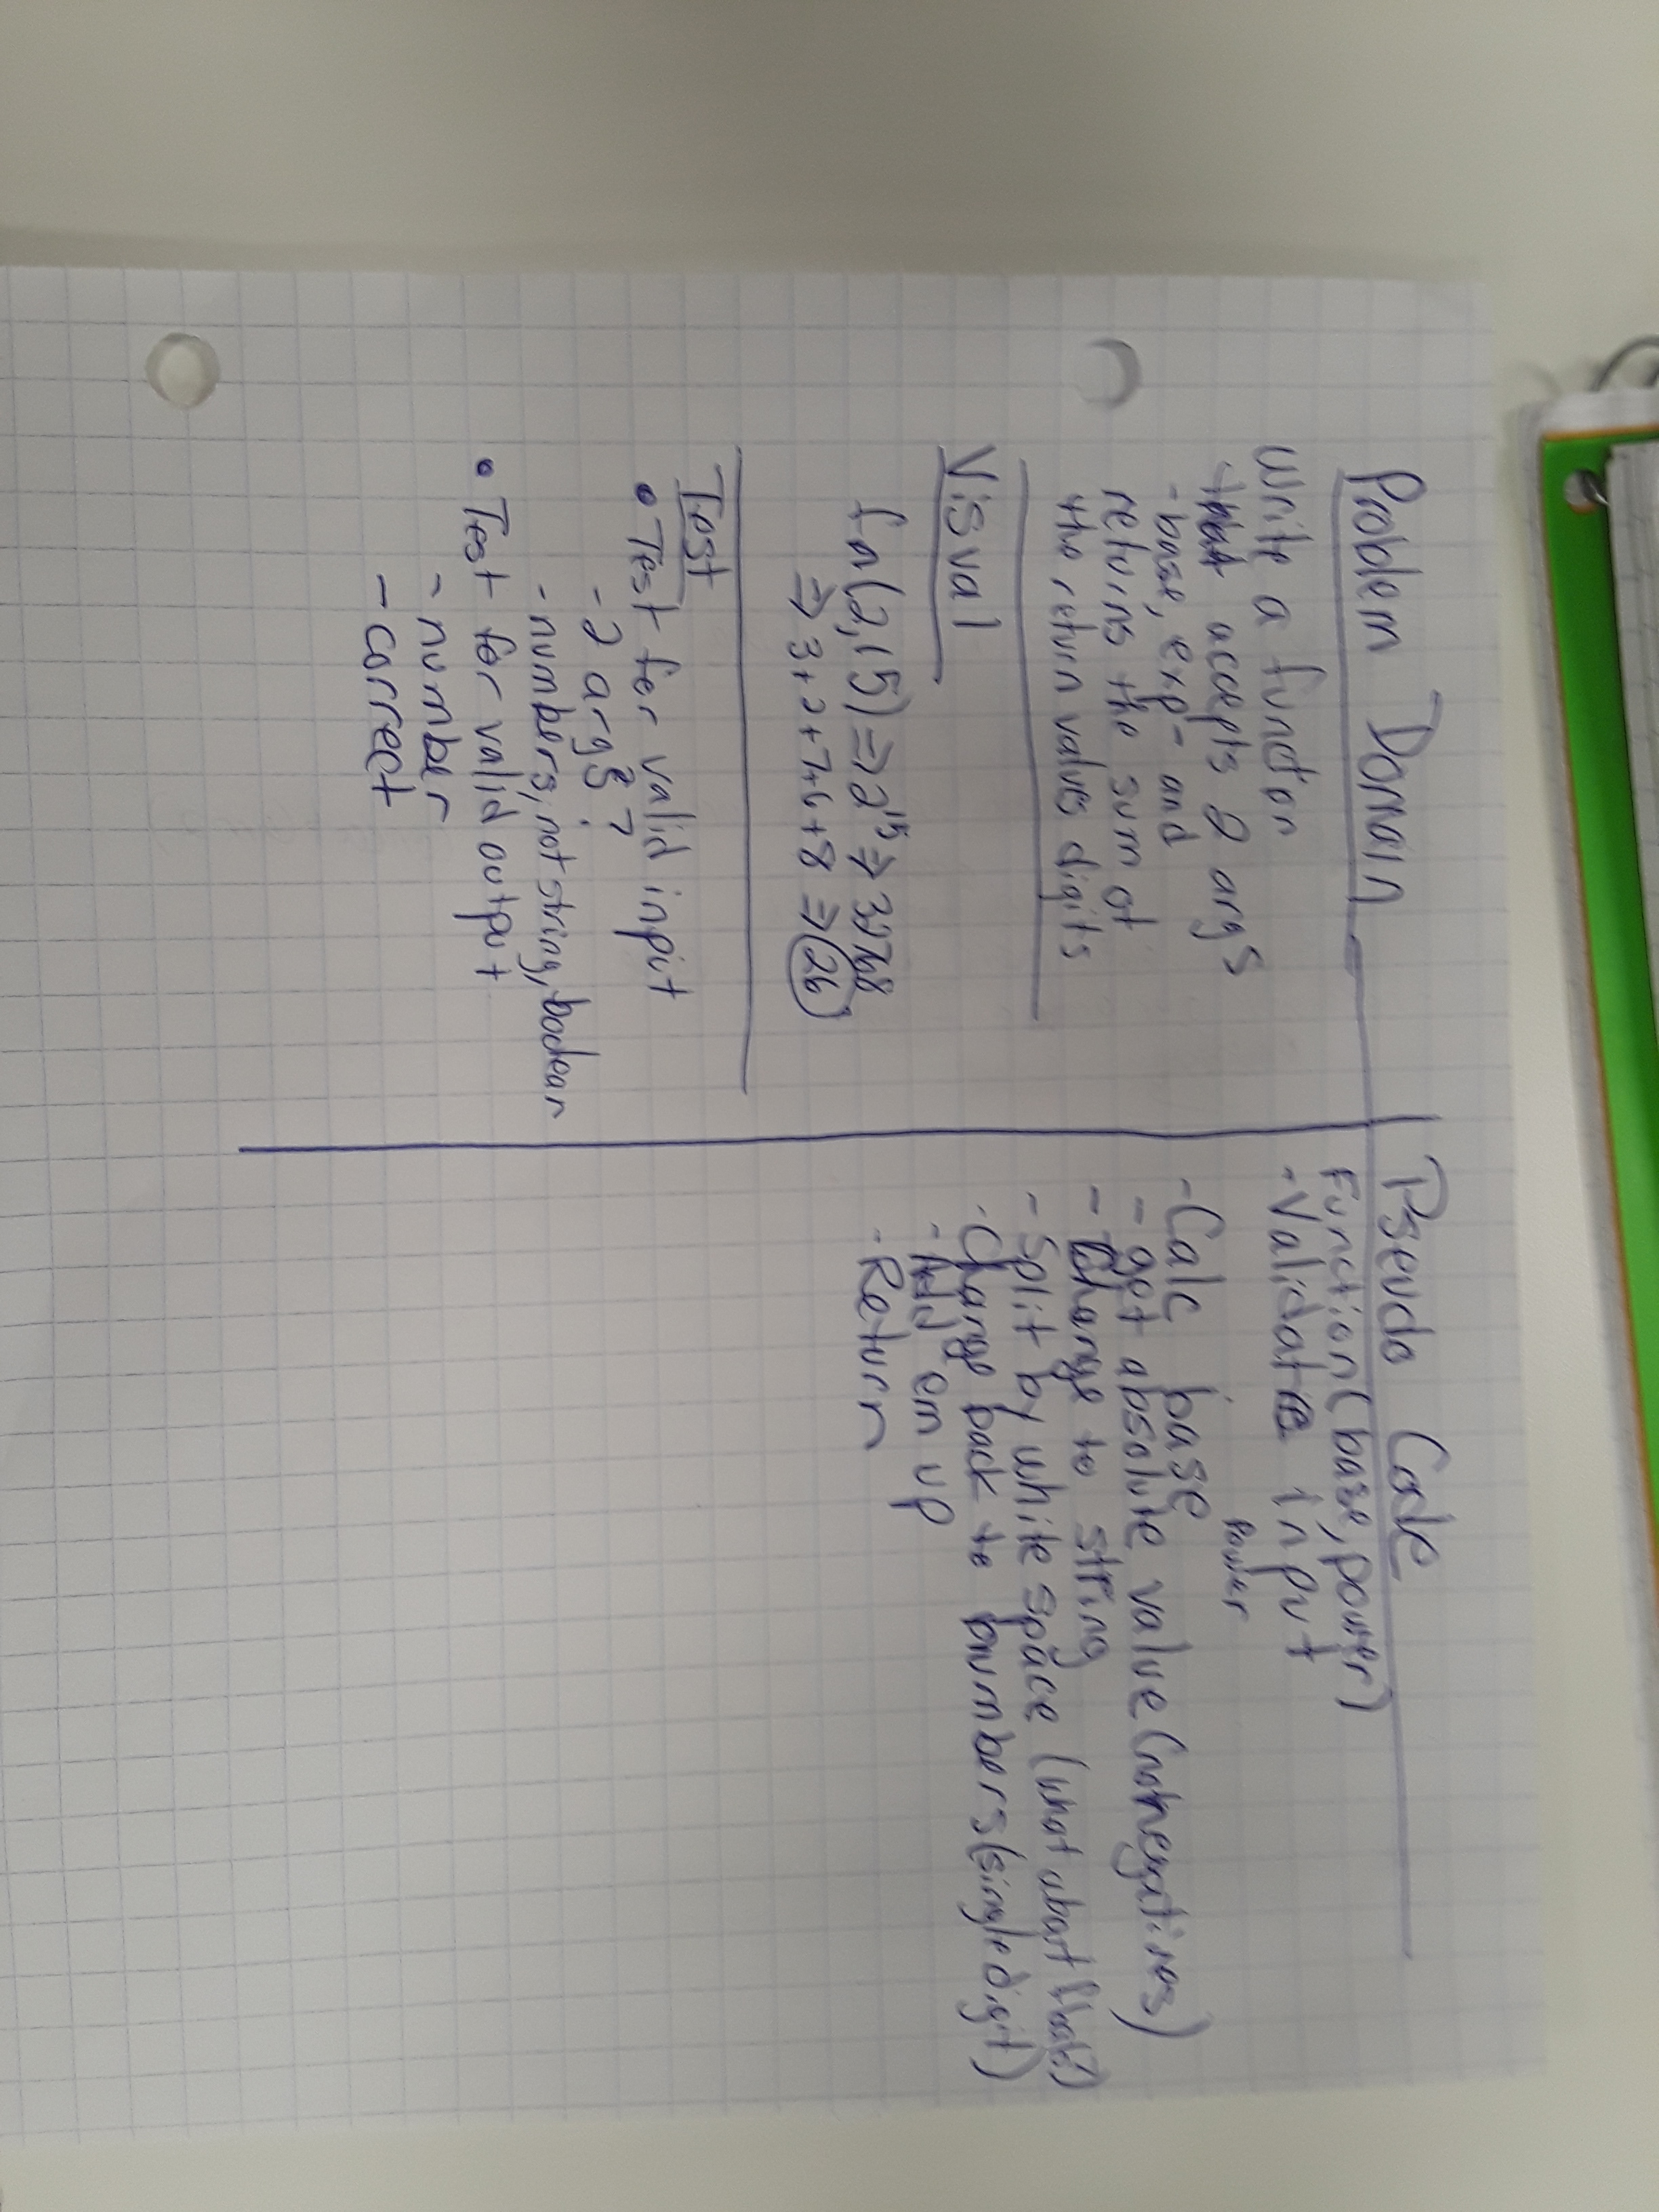 Problem Domain
Write a function
that accepts 2 args
- base, exp - and
returns the sum of
the return values digits
Visual
fn(2,15) => 2^15 => 32768
=> 3+2+7+6+8 => 26
Test
• Test for valid input
- 2 args?
- numbers, not string, boolean
• Test for valid output
- number
- correct
Pseudo Code
Function(base, power)
- Validate input
- Calc base power
- get absolute value (no negatives)
- Change to string
- Split by white space (what about float?)
- Change back to numbers (single digit)
- Add em up
- Return